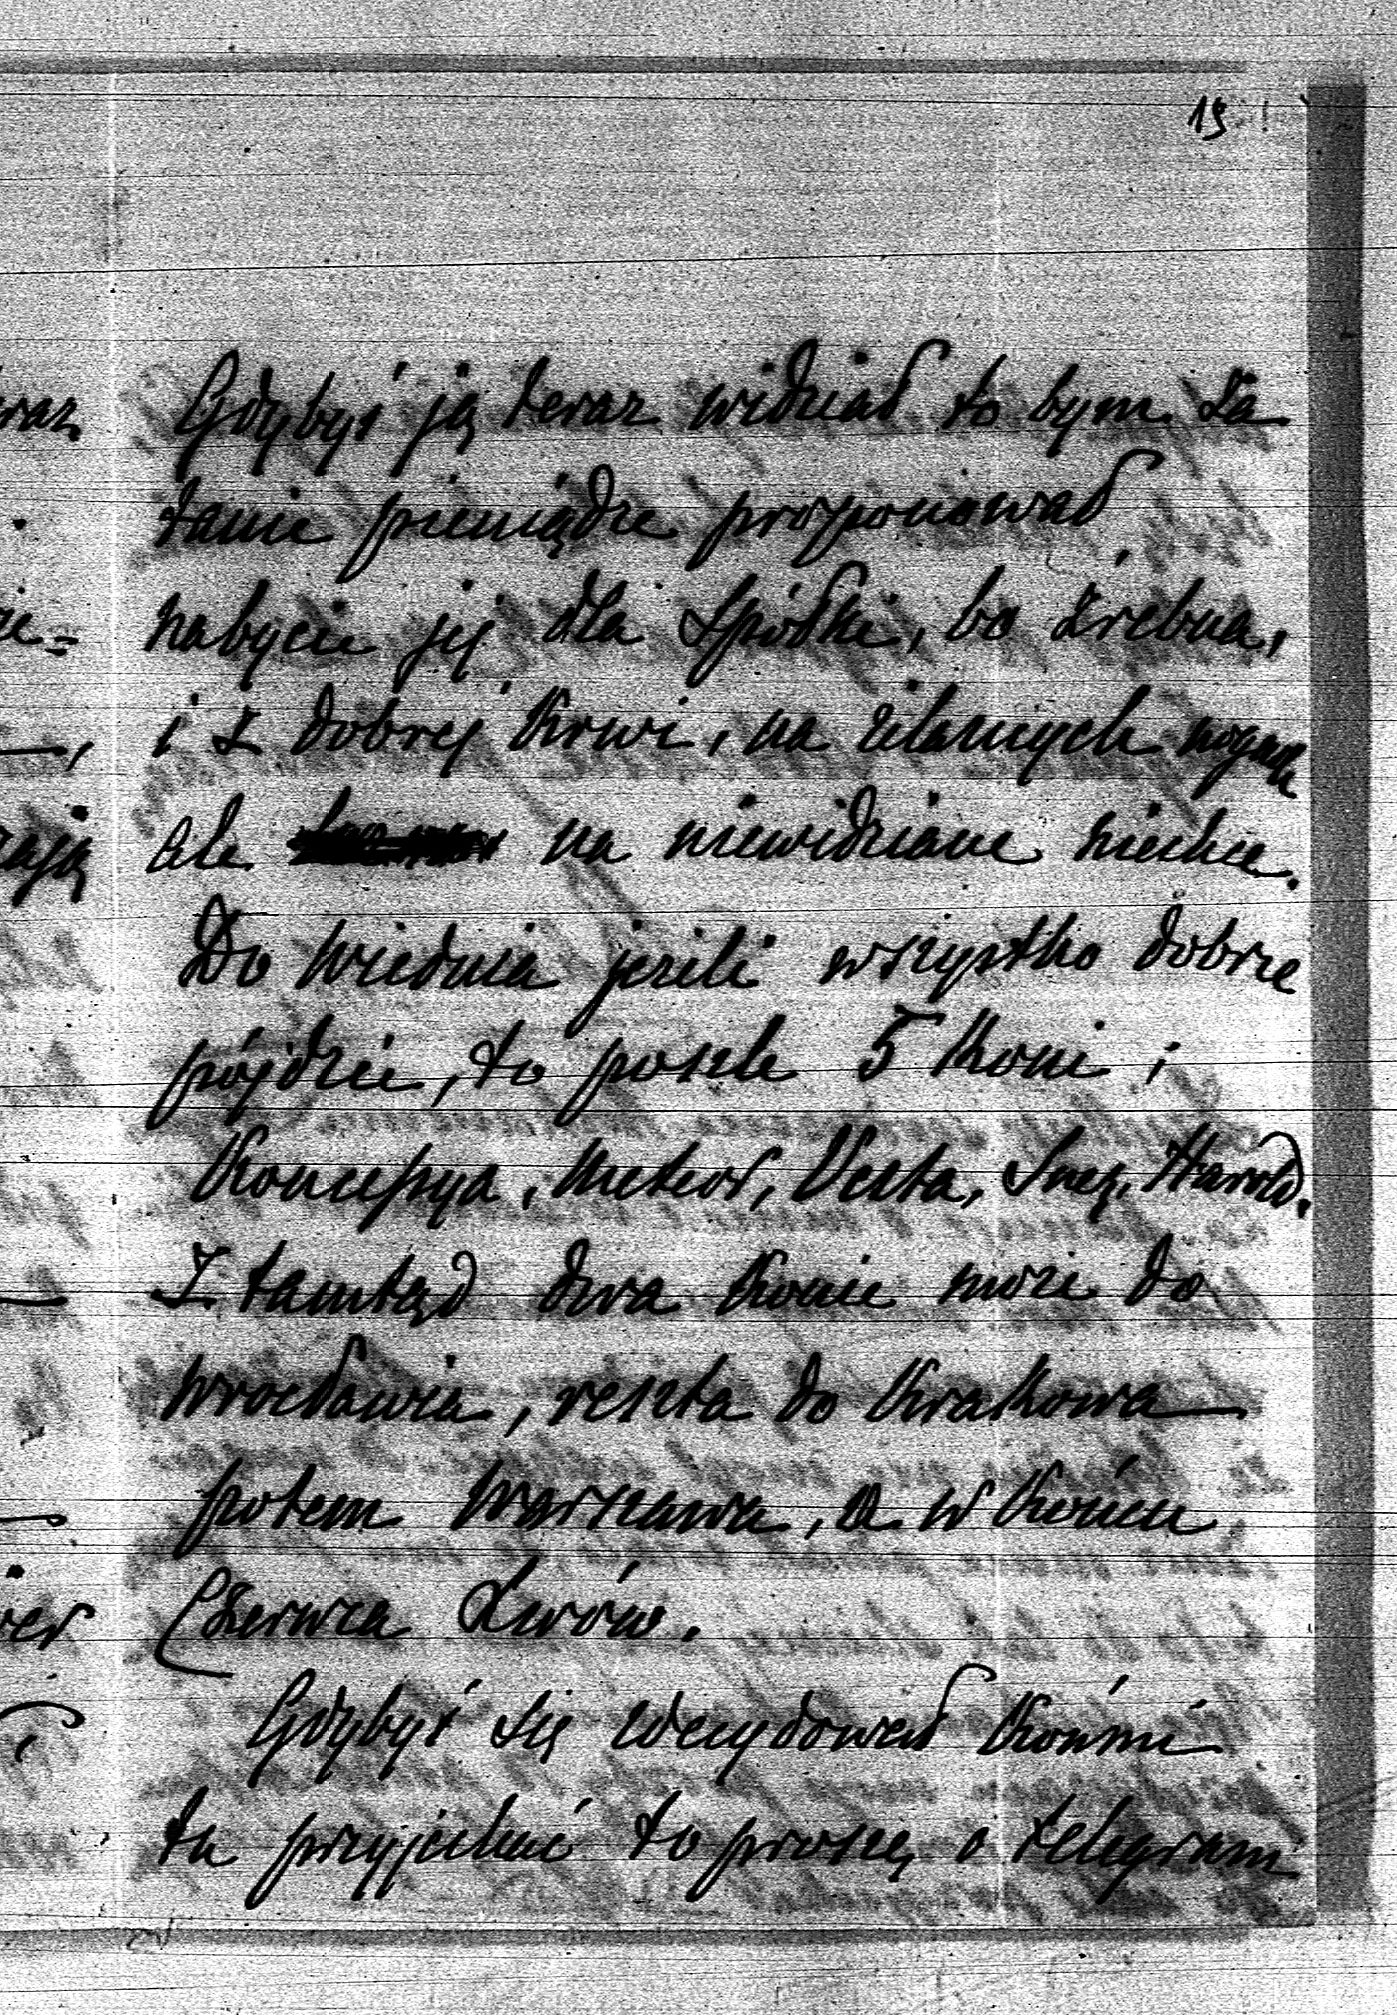 19
Gdybyś ją teraz widział to bym za
tanie pieniądze proponował
nabycie jej dla Spółki, bo źrebna,
i z dobrej krwi, na żelaznych nogach
ale na niewidziane niechcę.
Do Wiednia jeżeli wszystko dobrze
pójdzie, to poszlę 5 koni;
Koncepya, Meteor, Vesta, Harold.
Z tamtąd dwa konie może do
Wrocławia, reszta do Krakowa
potem Warszawa, a w końcu
Czerwca Lwów.
Gdybyś się zdecydował końmi
tu przyjechać to proszę o telegram